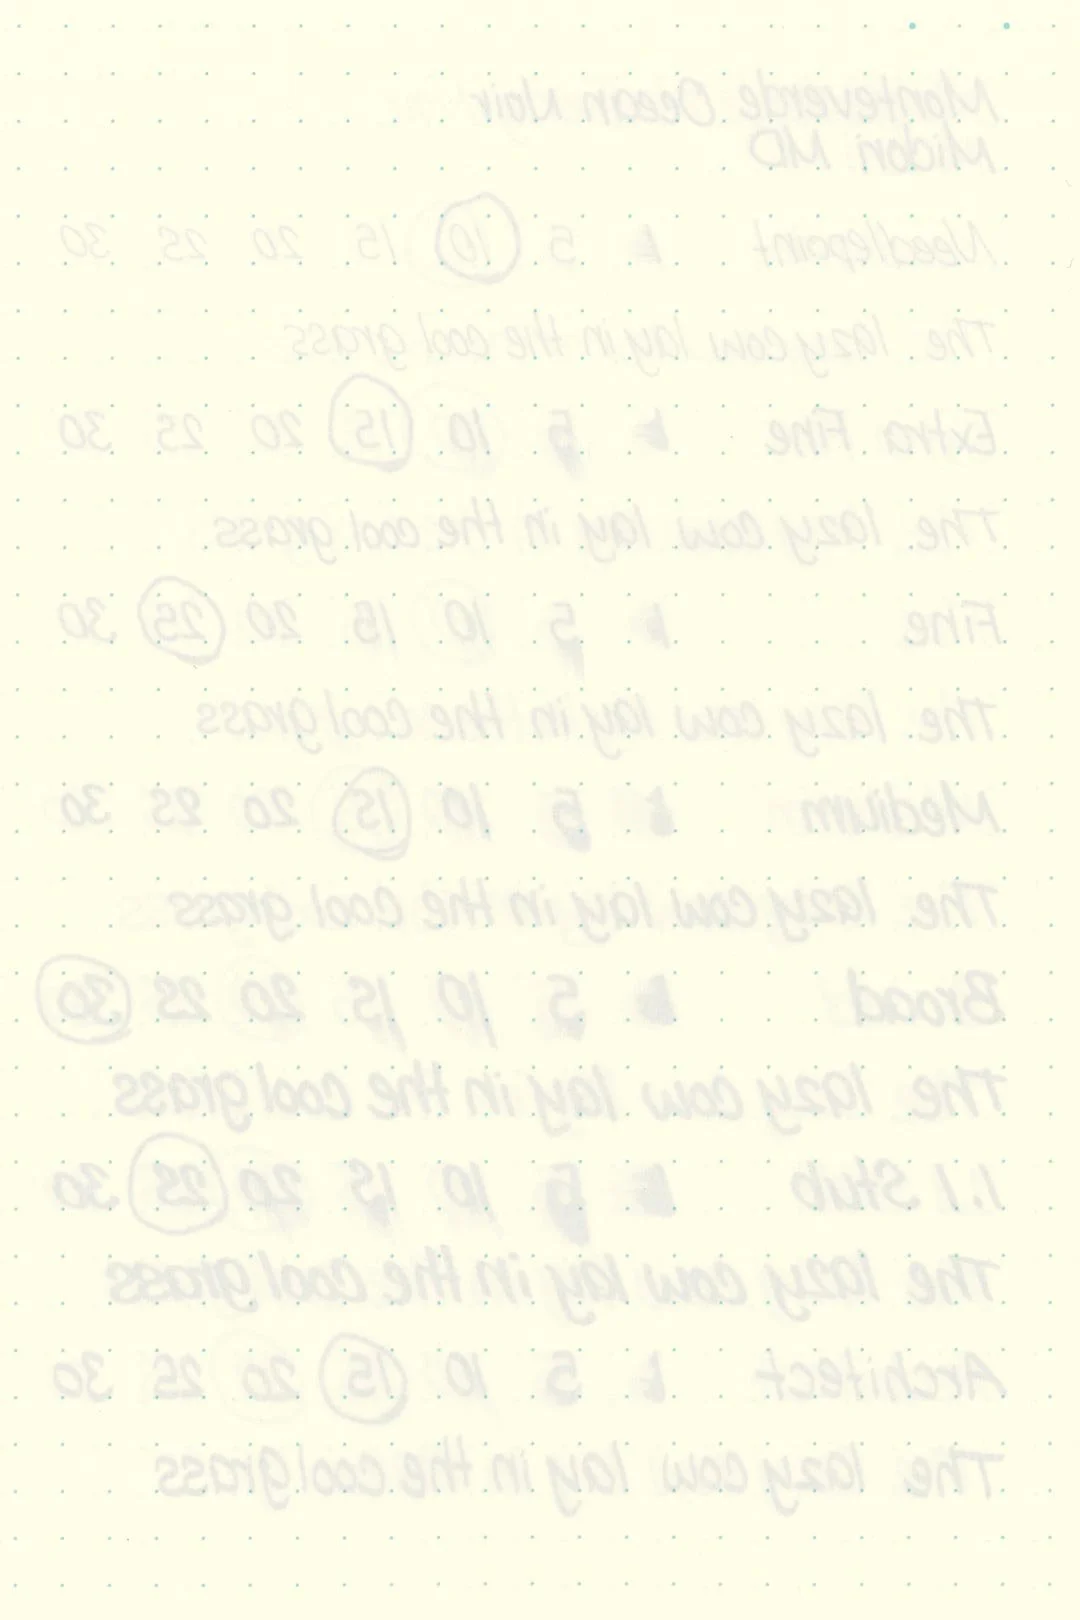 Monteverde Ocean Noir
Midori MD
Needlepoint 1 5 10 15 20 25 30
The lazy cow lay in the cool grass
Extra Fine 1 5 10 15 20 25 30
The lazy cow lay in the cool grass
Fine 1 5 10 15 20 25 30
The lazy cow lay in the cool grass
Medium 1 5 10 15 20 25 30
The lazy cow lay in the cool grass
Broad 1 5 10 15 20 25 30
The lazy cow lay in the cool grass
1.1 Stub 1 5 10 15 20 25 30
The lazy cow lay in the cool grass
Architect 1 5 10 15 20 25 30
The lazy cow lay in the cool grass